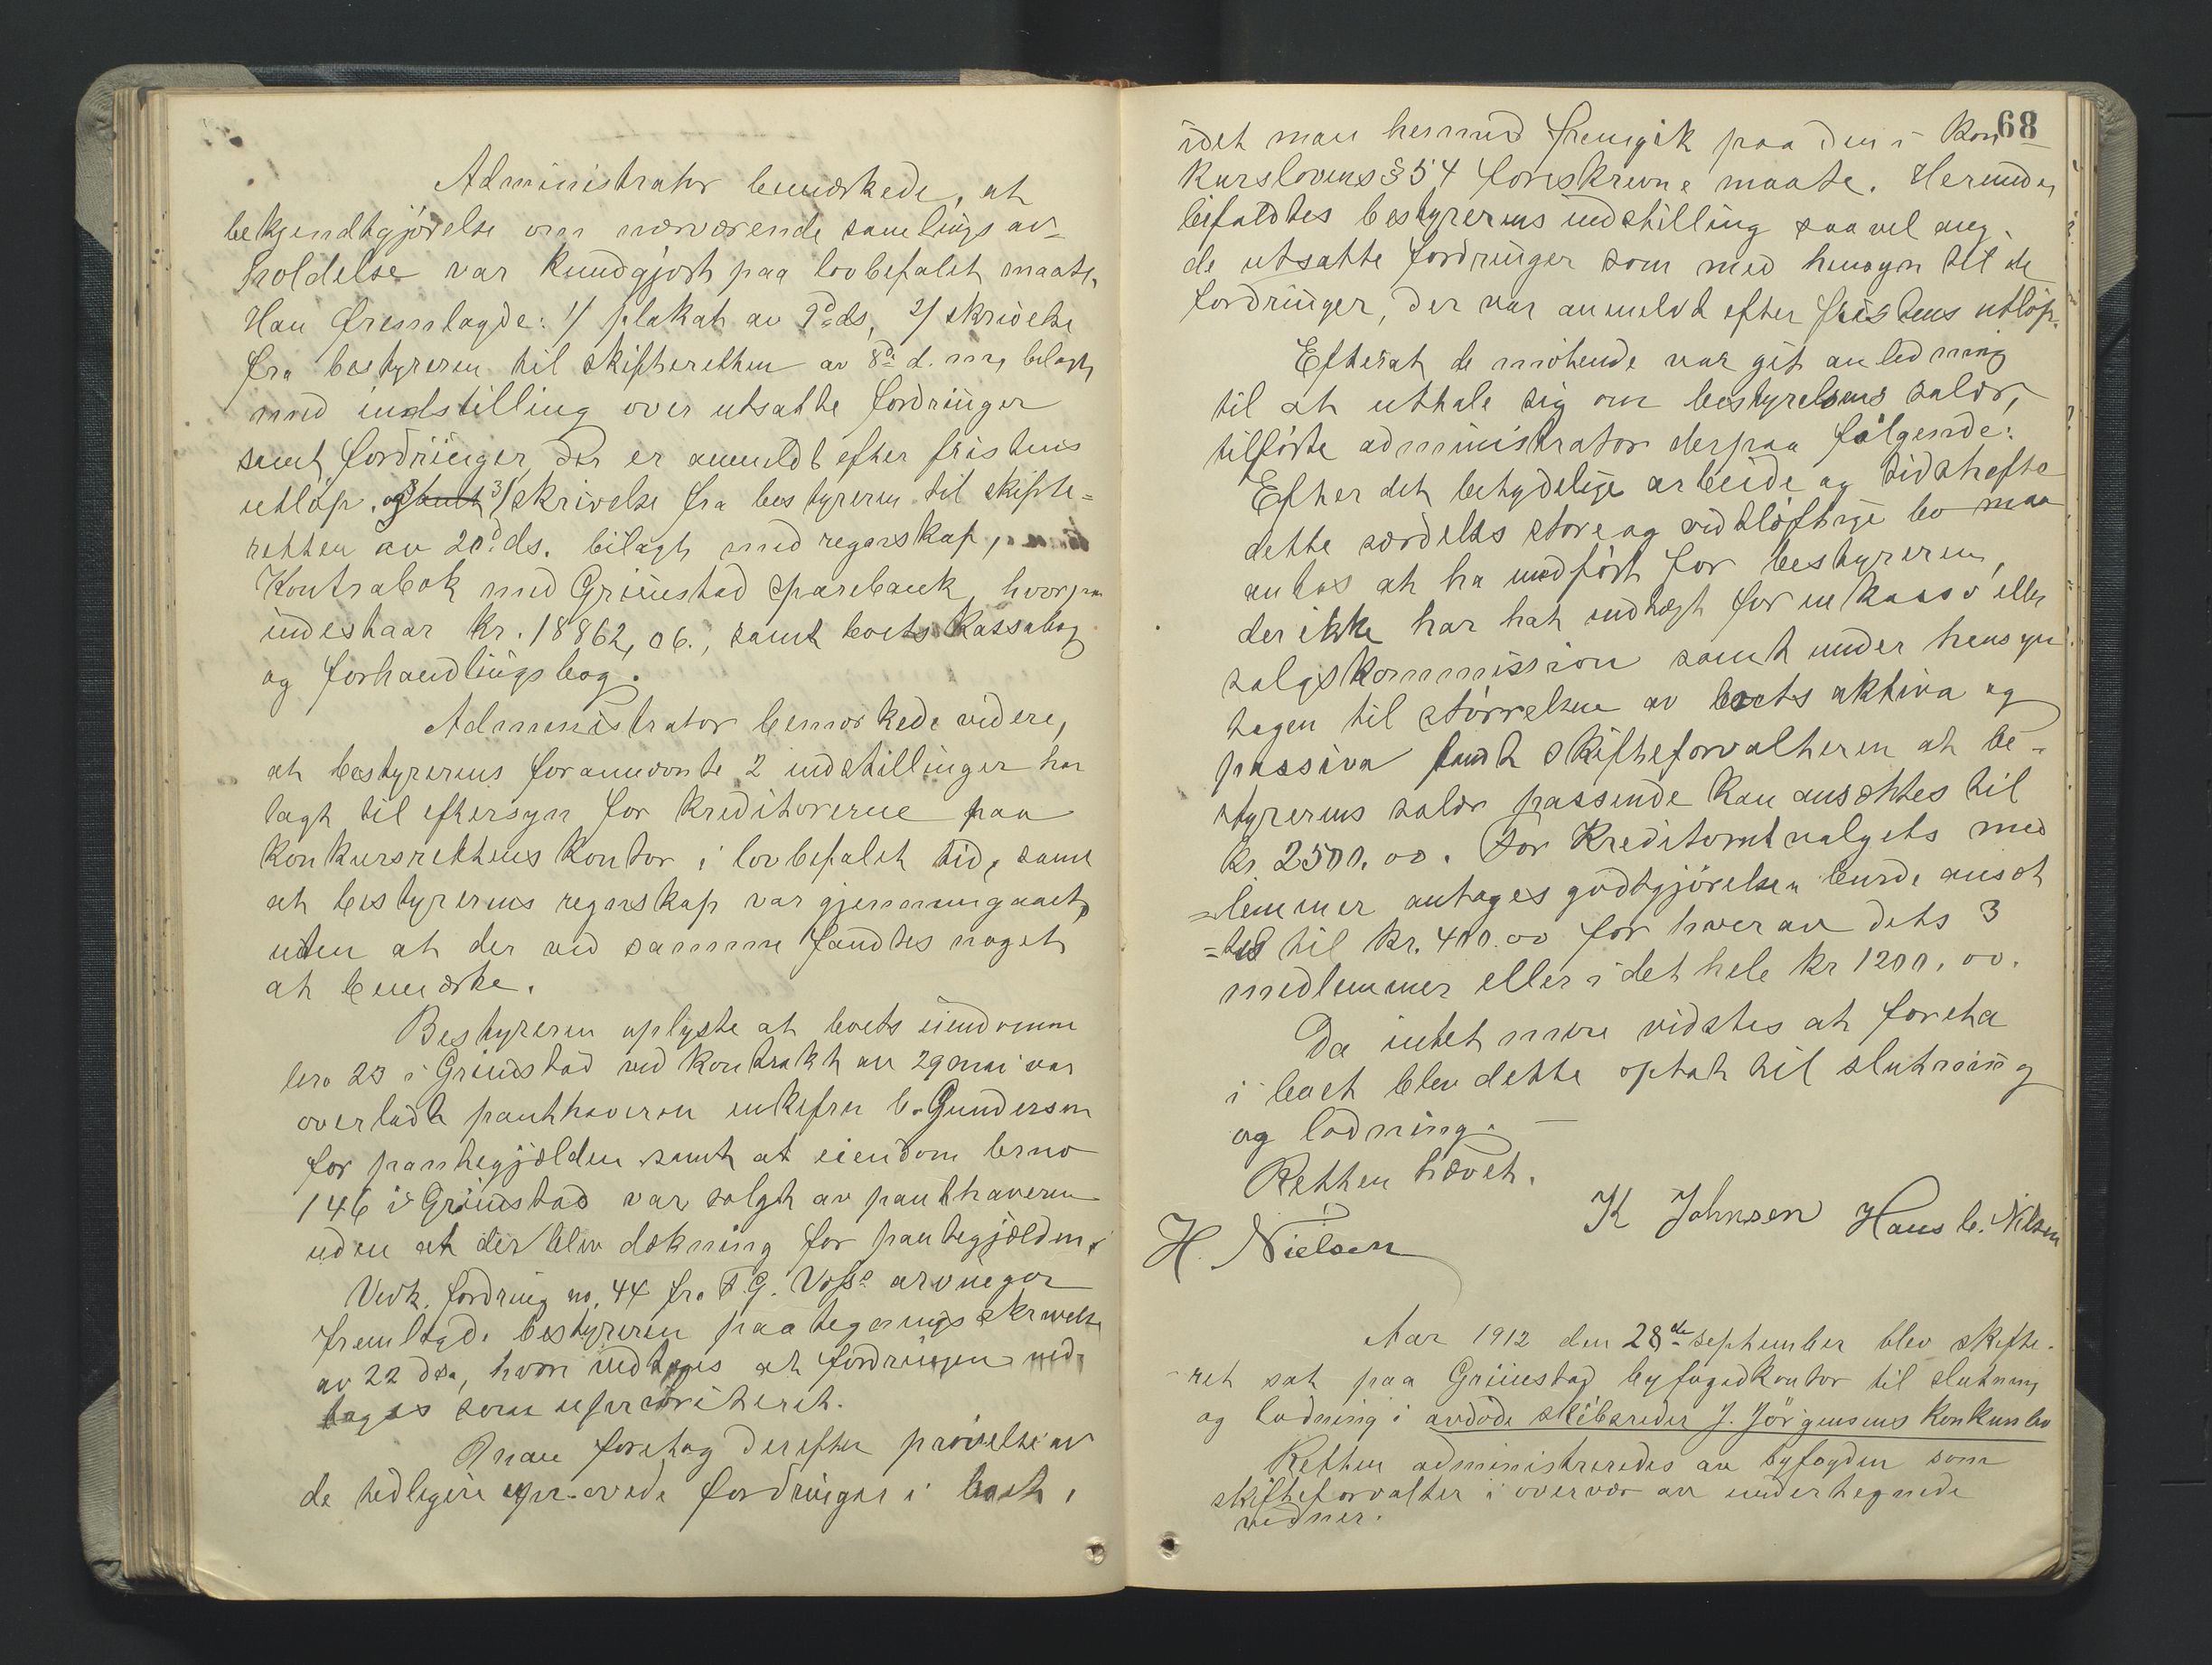 Administrator bemærkede, at
bekjendtgjørelse om nærværende samlings av-
holdelse var kundgjort paa lovbefalet maate.
Han fremlagde: 1/ plakat av 9de ds, 2/ skrivelse
fra bestyreren til skifteretten av 8de d. m., bilagt
med indstilling over utsatte fordringer
samt fordringer der er anmeldt efter fristens
utløp. 3/ skrivelse fra bestyreren til skifte-
retten av 20d ds. bilagt med regnskap,
Kontrabok med Grimstad sparebank, hvorpaa
indestaar kr. 18862,06., samt boets Kassabog
og forhandlingsbog.
Administrator bemærkede videre,
at bestyrerens forannævnte 2 indstillinger har
lagt til eftersyn for kreditorerne paa
konkursrettens kontor i lovbefalet tid, samt
at bestyrerens regnskap var gjennemgaaet,
uten at der ved samme fandtes noget
at bemærke.
Bestyreren oplyste at boets eiendomme
brno 23 i Grimstad ved kontrakt av 29 mai var
overladt panthaveren enkefru B. Gundersen
for pantegjælden samt at eiendom brno
146 i Grimstad var solgt av panthaveren
uden at der blev dækning for pantegjælden.
Vedk. fordring no. 44 fra F. G. Voss's arvinger
fremlagde bestyreren paategnings skrivelse
av 22 ds., hvori indtages at fordringen med-
tages som uprioriteret.
Man foretog derefter prøvelse av
de tidligere uprøvede fordringer i boet,
68
idet man hermed fremgik paa den i Kon
kurslovens § 54 foreskrevne maate. Herunder
bifaldtes bestyrerens indstilling saavel ang.
de utsatte fordringer som med hensyn til de
fordringer, der var anmeldt efter fristens utløp.
Efterat de møtende var git anledning
til at uttale sig om bestyrelsens salær,
tilførte administrator derpaa følgende:
Efter det betydelige arbeide og tidshefte
dette særdeles store og vidtløftige bo maa
antas at ha medført for bestyreren,
der ikke har hat indtægt for inkasso eller
salgskommission samt under hensyn
tagen til størrelsen av boets aktiva og
passiva fandt skifteforvalteren at be-
styrerens salær passende kan ansættes til
kr. 2500.00. For Kreditorutvalgets med
=lemmer antages godtgjørelsen burde ansæt
=tes til kr. 400.00 for hver av dets 3
medlemmer eller i det hele kr 1200.00.
Da intet mere vidstes at foreta
i boet blev dette optat til slutning
og lodning. —
Retten hævet.
H. Nielsen
K Johnsen Hans C. Nilsen
Aar 1912 den 28de september blev skifte-
ret sat paa Grimstad byfogdkontor til slutning
og lodning i avdøde skibsreder J. Jørgensens Konkursbo
Retten administreredes av byfogden som
skifteforvalter i overvær av undertegnede
vidner.